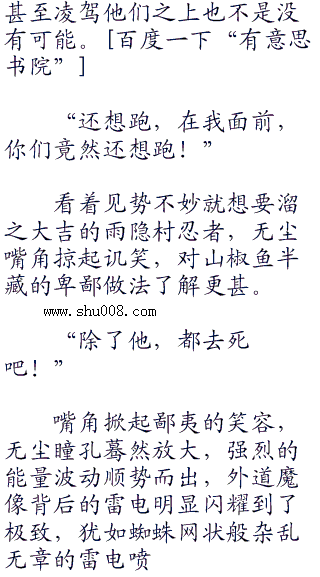 甚至凌驾他们之上也不是没
有可能。[百度一下“有意思
书院”]
“还想跑，在我面前，
你们竟然还想跑！”
看着见势不妙就想要溜
之大吉的雨隐村忍者，无尘
嘴角掠起讥笑，对山椒鱼半
藏的卑鄙做法了解更甚。
www.shu008.com
“除了他，都去死
吧！”
嘴角掀起鄙夷的笑容，
无尘瞳孔蓦然放大，强烈的
能量波动顺势而出，外道魔
像背后的雷电明显闪耀到了
极致，犹如蜘蛛网状般杂乱
无章的雷电喷